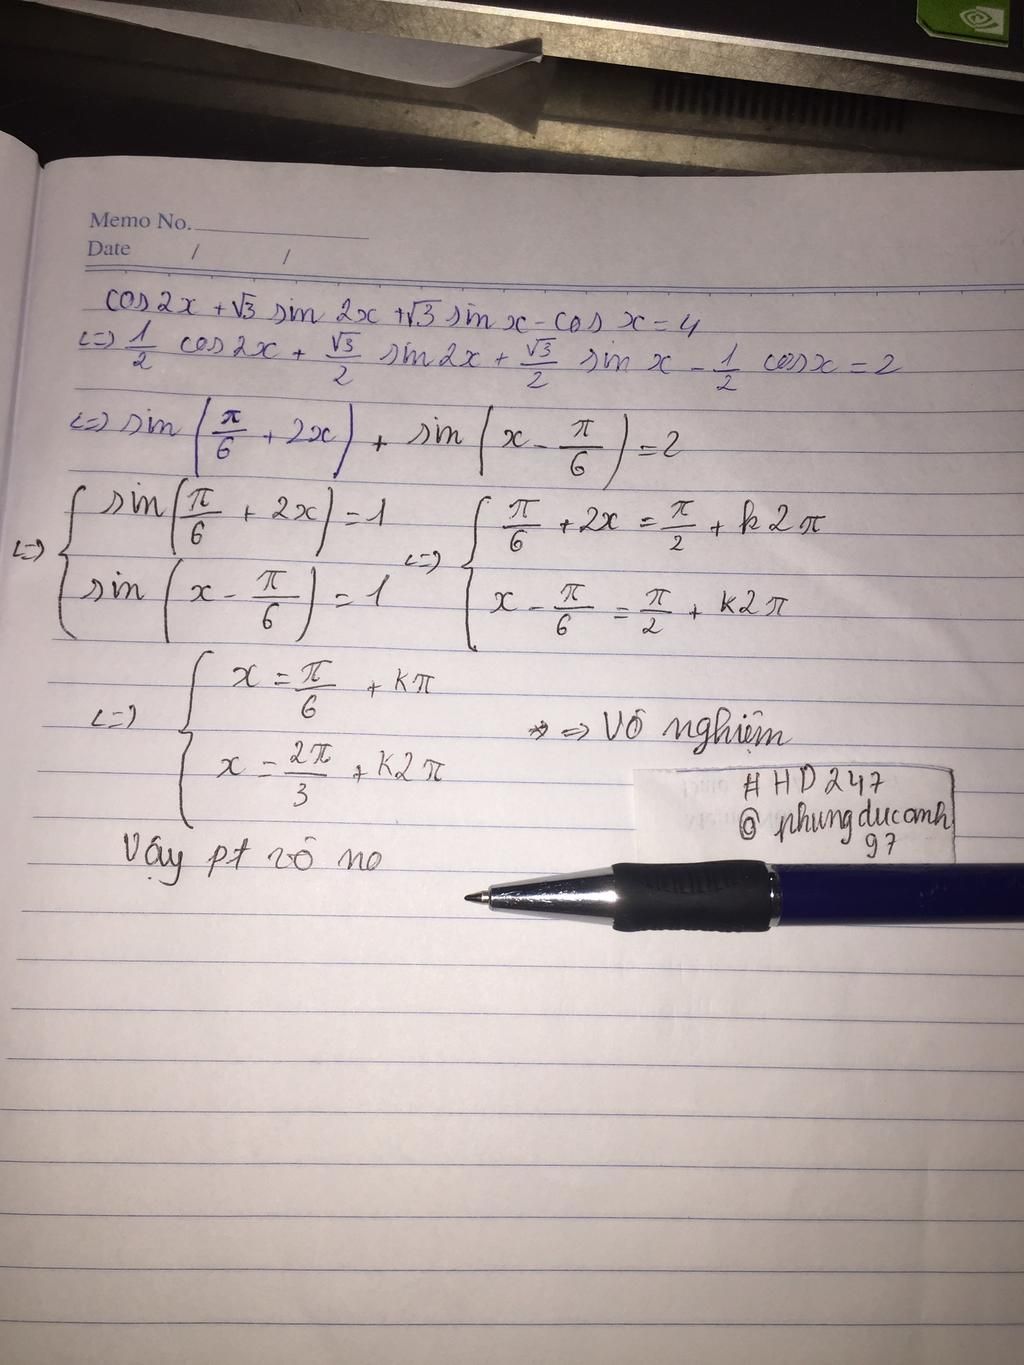 Memo No.
Date / /
cos 2x + √3 sin 2x + √3 sin x - cos x = 4
<=> 1/2 cos 2x + √3/2 sin 2x + √3/2 sin x - 1/2 cos x = 2
<=> sin(π/6 + 2x) + sin(x - π/6) = 2
<=> { sin(π/6 + 2x) = 1 <=> { π/6 + 2x = π/2 + k2π
sin(x - π/6) = 1 x - π/6 = π/2 + k2π
<=> { x = π/6 + kπ
=> Vô nghiệm
x = 2π/3 + k2π
# HD247
@ phungducanh
97
Vậy pt vô no